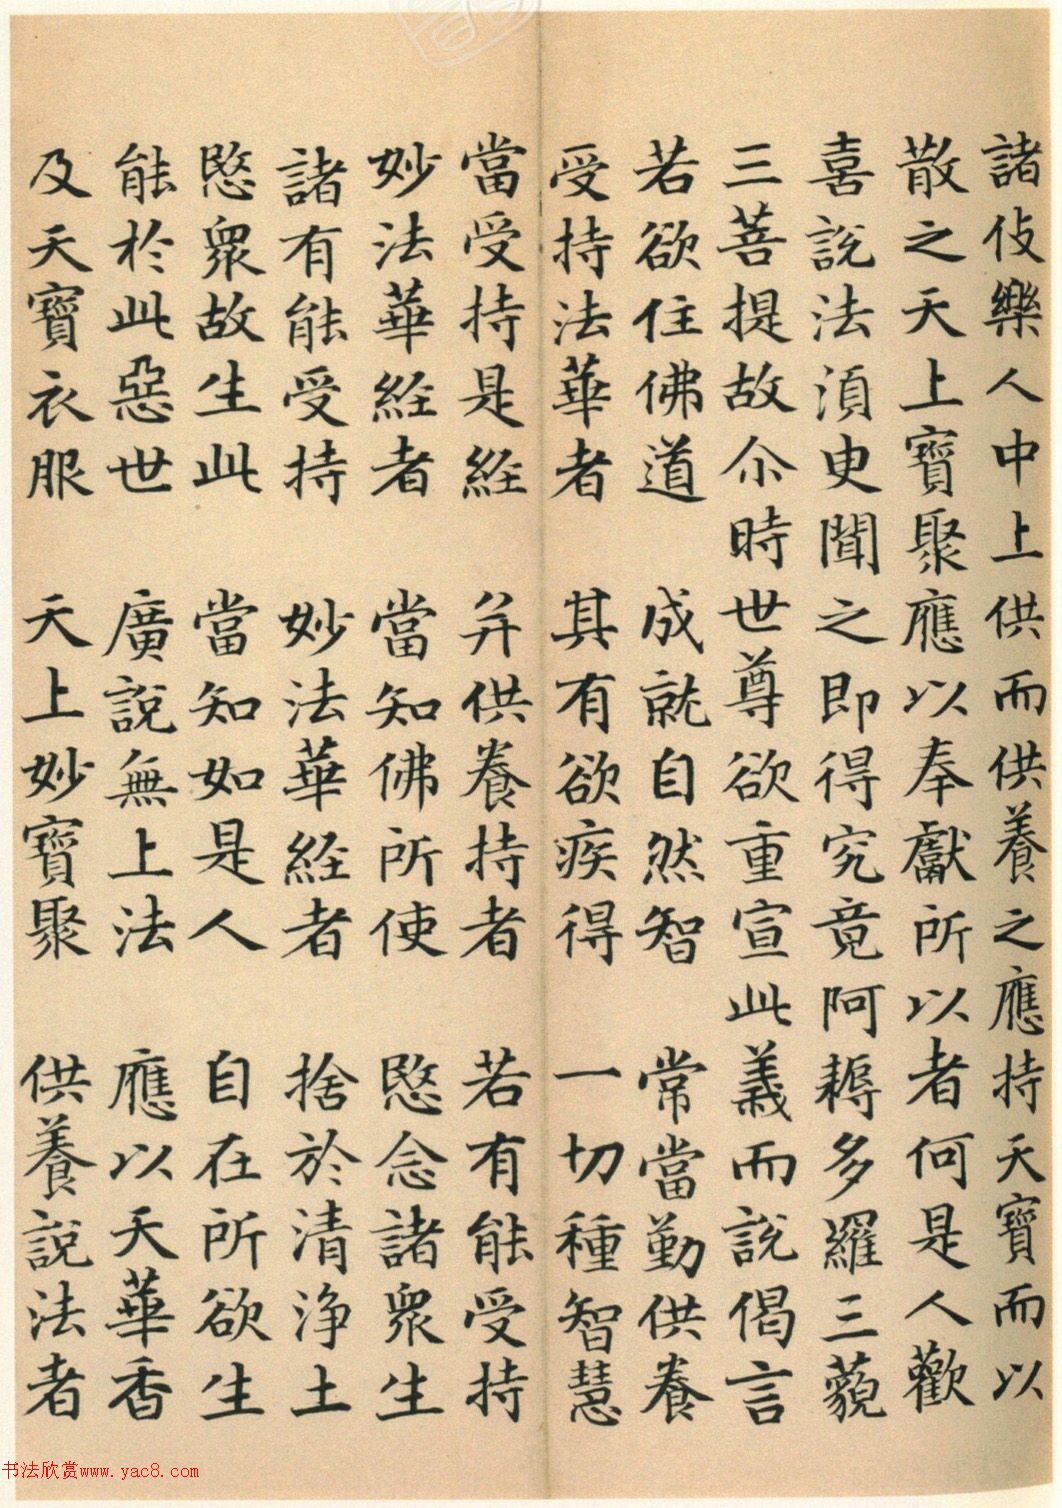 諸伎樂人中上供而供養之應持天寶而以
散之天上寶聚應以奉獻所以者何是人歡
喜說法須臾聞之即得究竟阿耨多羅三藐
三菩提故尒時世尊欲重宣此義而說偈言
若欲住佛道　成就自然智　常當勤供養
受持法華者　其有欲疾得　一切種智慧
當受持是經　并供養持者　若有能受持
妙法華經者　當知佛所使　愍念諸眾生
諸有能受持　妙法華經者　捨於清淨土
愍眾故生此　當知如是人　自在所欲生
能於此惡世　廣說無上法　應以天華香
及天寶衣服　天上妙寶聚　供養說法者
书法欣赏www.yac8.com